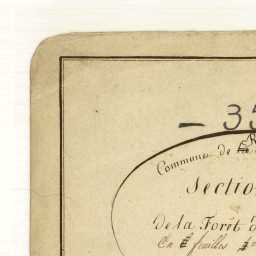 – 35
Commune de
Sectio
De la Forêt d
En feuilles